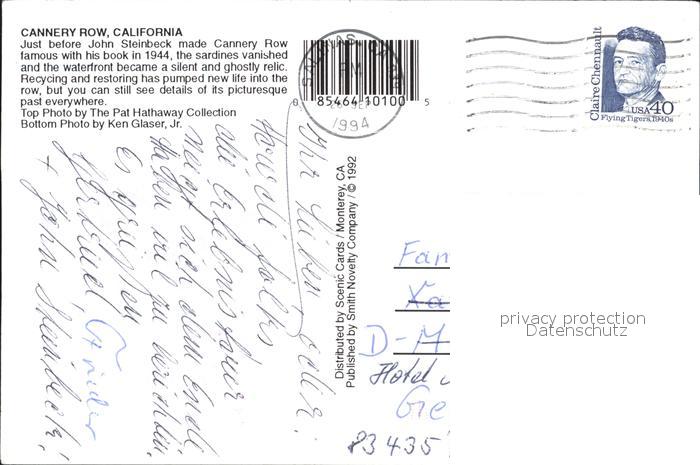 CANNERY ROW, CALIFORNIA
Just before John Steinbeck made Cannery Row
famous with his book in 1944, the sardines vanished
and the waterfront became a silent and ghostly relic.
Recycing and restoring has pumped new life into the
row, but you can still see details of its picturesque
past everywhere.
Top Photo by The Pat Hathaway Collection
Bottom Photo by Ken Glaser, Jr.
0 85464 10100 5
PM
1994
Claire Chennault
USA 40
Flying Tigers, 1940s
Distributed by Scenic Cards / Monterey, CA
Published by Smith Novelty Company / © 1992
Ihr Lieben
die Erlebnistour
neigt sich dem Ende
haben viel zu berichten
Es grüßen
+ John Steinbeck!
Fam
D-M
Hotel
Ge
83435
privacy protection
Datenschutz